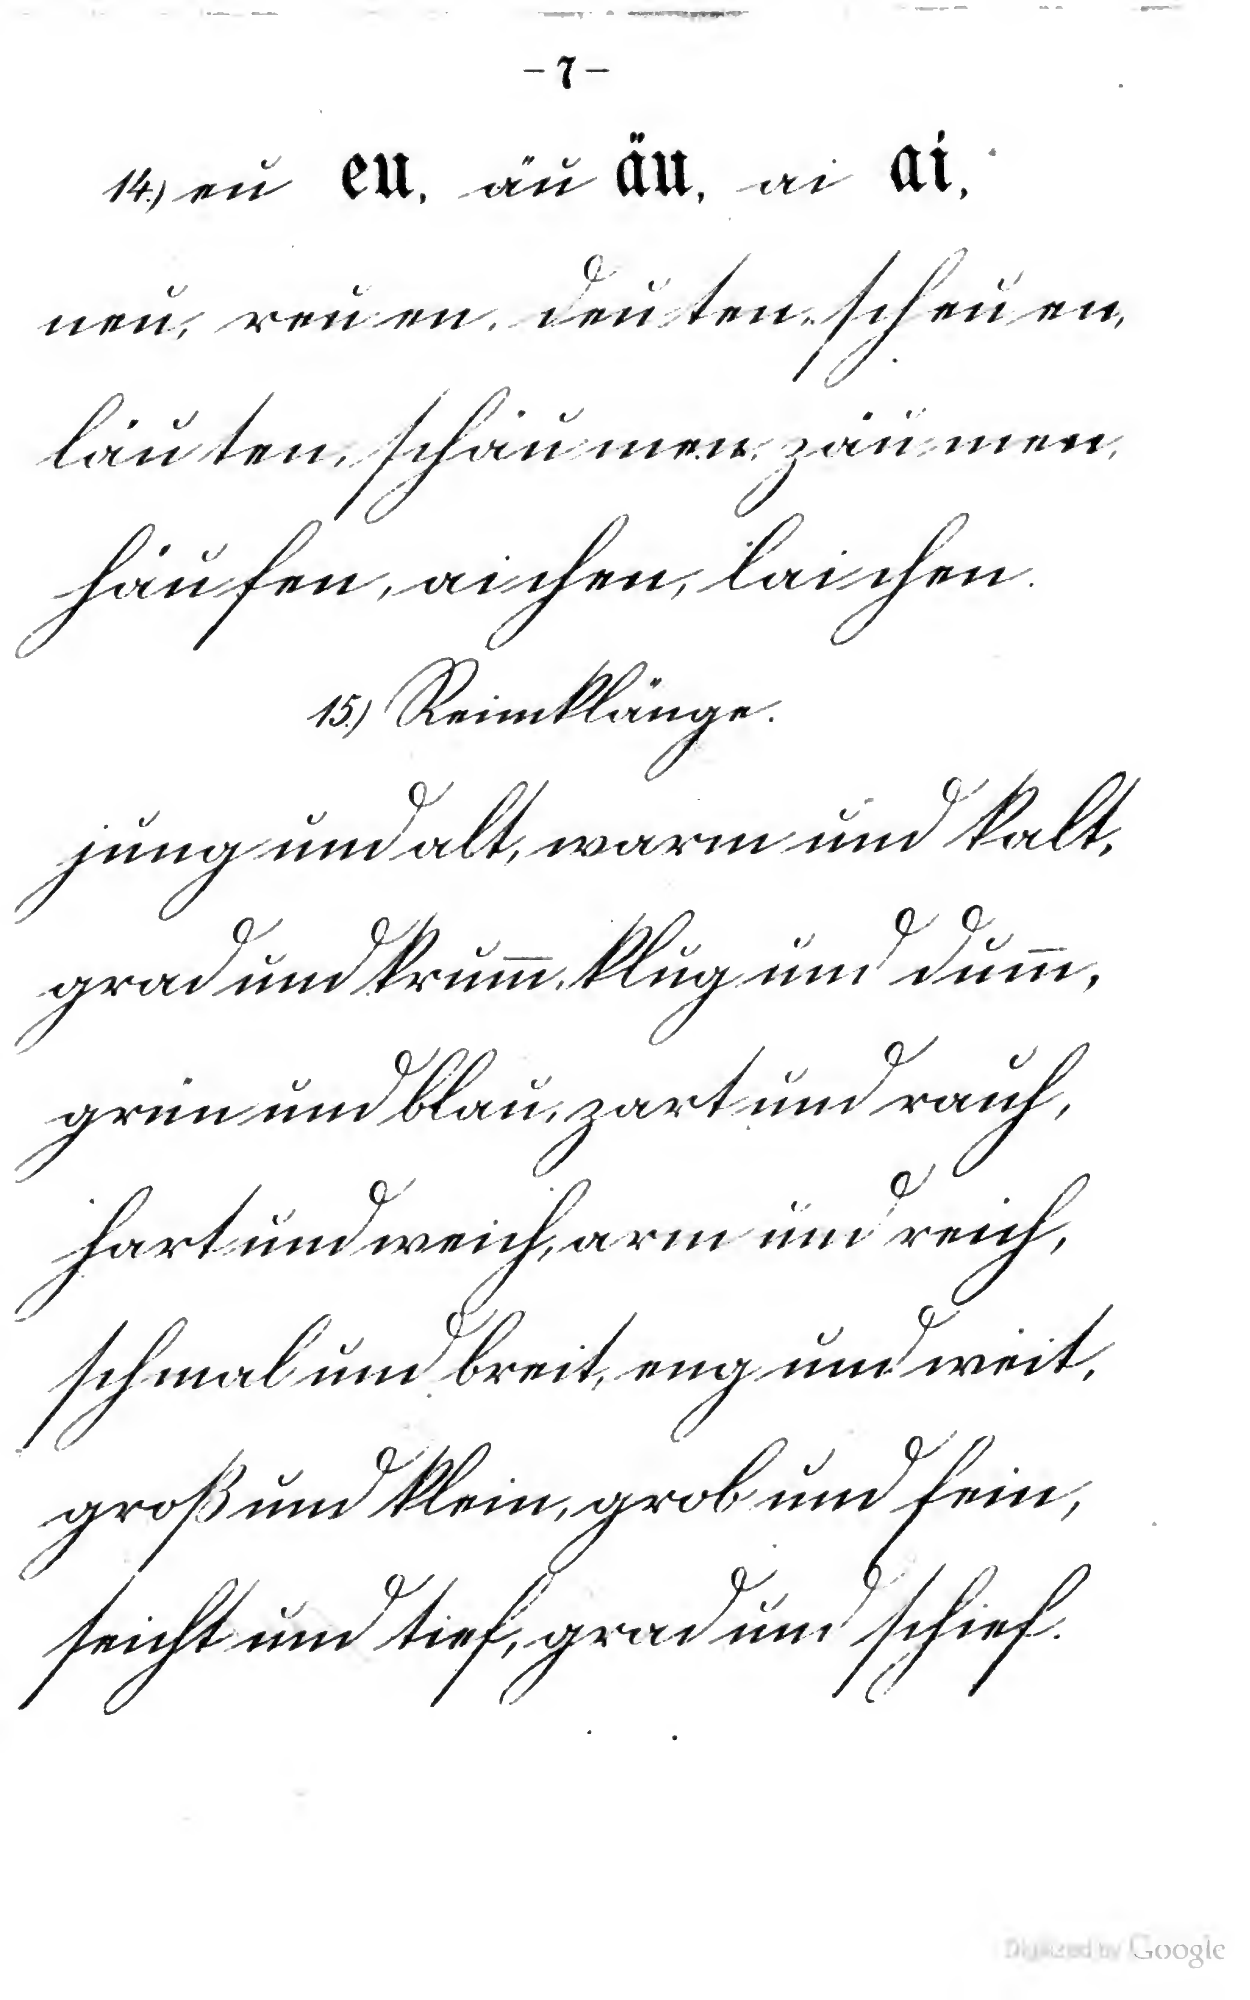 - 7 -
14.) eu eu, äu äu, ai ai,
neu, reuen, deuten, scheuen,
läuten, schäumen, zäumen,
häufen, aichen, laichen.
15.) Reimklänge.
jung und alt, warm und kalt,
grad und krum̅, klug und dum̅,
grün und blau, zart und rauh,
hart und weich, arm und reich,
schmal und breit, eng und weit,
groß und klein, grob und fein,
seicht und tief, grad und schief.
Digitized by Google